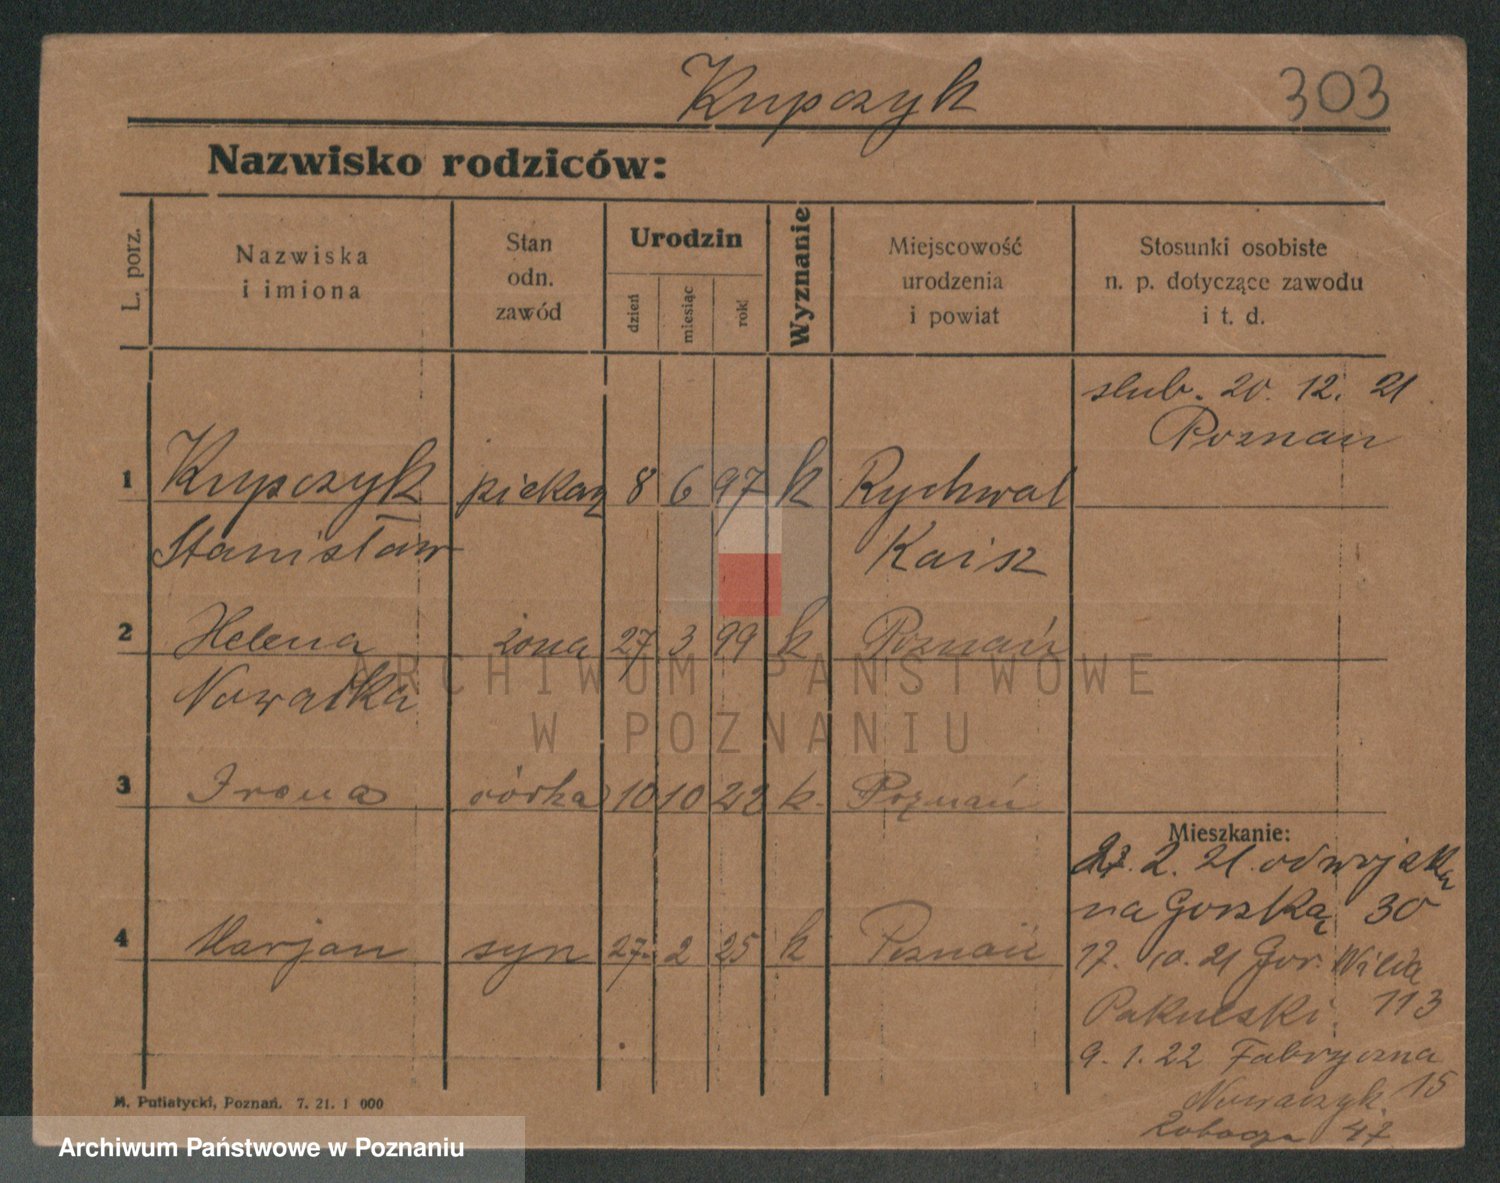 Kupczyk
303
Nazwisko rodziców:
L. porz.
Nazwiska
i imiona
Stan
odn.
zawód
Urodzin
dzień
miesiąc
rok
Wyznanie
Miejscowość
urodzenia
i powiat
Stosunki osobiste
n. p. dotyczące zawodu
i t. d.
slub. 20. 12. 21
Poznan
1 Kupczyk piekarz 8 6 97 k Rychwal
Stanisław Kalisz
2 Helena żona 27 3 99 k Poznań
Nowacka
3 Irena córka 10 10 22 k. Poznań
Mieszkanie:
2. 21. od wojska
na Gorską 30
4 Marjan syn 27. 2 25 k Poznań
17. 10. 21 Gor. Wilda
113
9. 1. 22 Fabryczna
15
Nowaczyk.
47
M. Putiatycki, Poznań. 7. 21. 1 000
ARCHIWUM PAŃSTWOWE
W POZNANIU
Archiwum Państwowe w Poznaniu